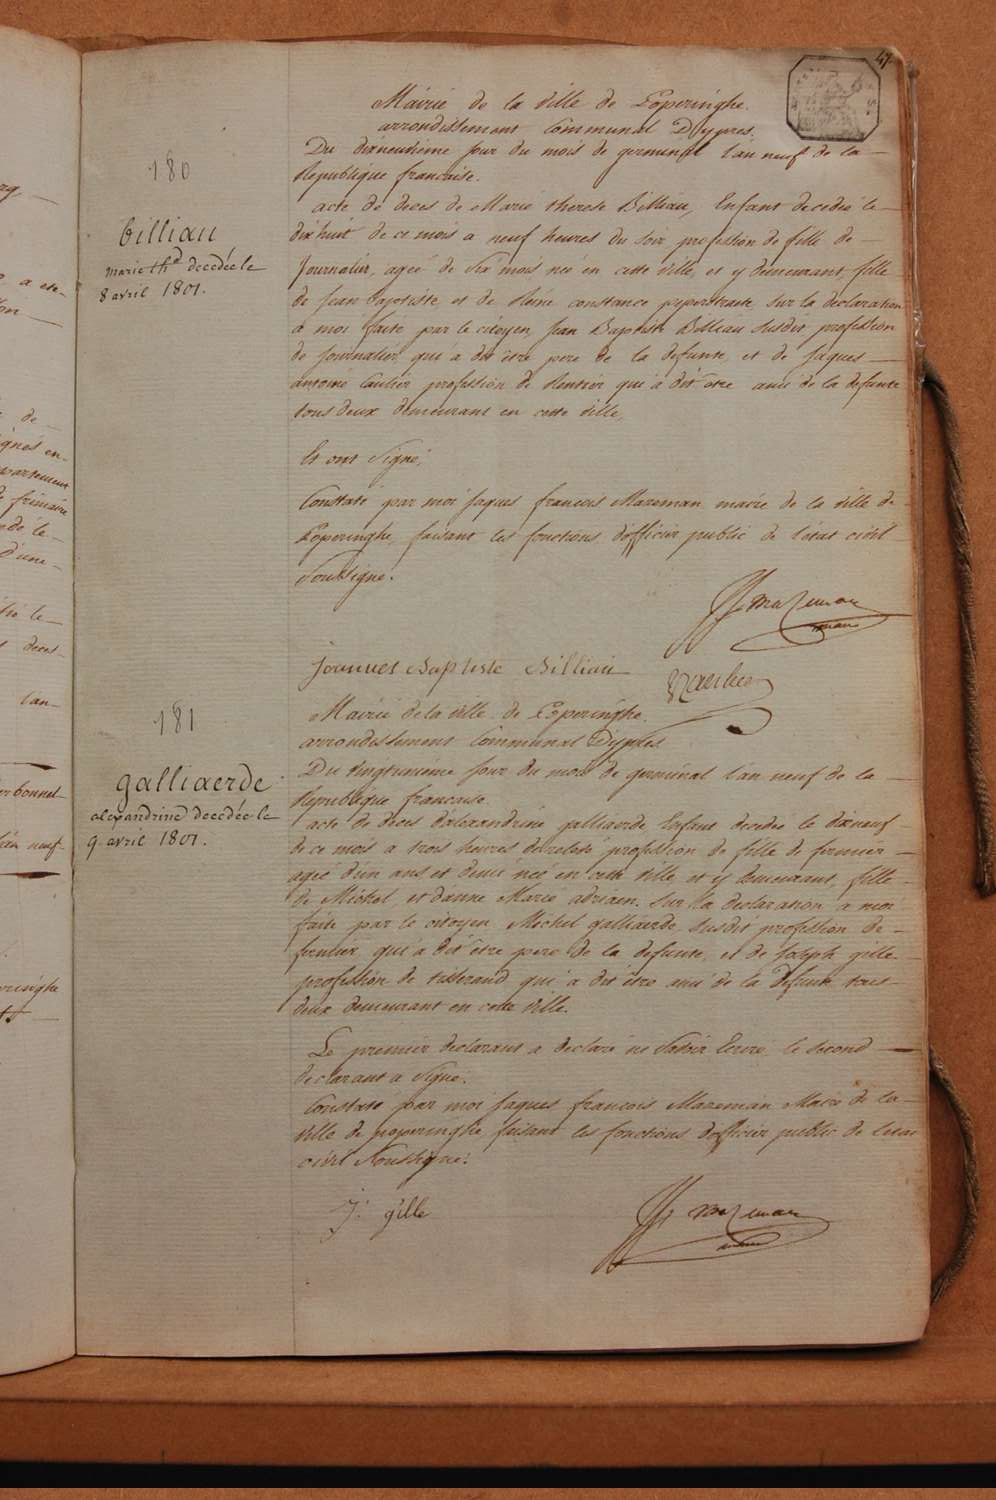 47
Mairie de la ville de Poperinghe.
arrondissement Communal D'ypres.
180
Du dixneuvième jour du mois de germinal l'an neuf de la
Republique francaise.
billiau
marie th.e decedée le
8 avril 1801.
acte de deces de Marie therese Billiau, Enfant decedée le
dix huit de ce mois a neuf heures du soir profession de fille de
Journalier, ageé de Six mois neé en cette ville, et y demeurant, fille
de Jean baptiste et de Reine constance peperstraete, sur la declaration
a moi faite par le citoyen, Jean Baptiste Billiau susdit, profession
de Journalier qui a dit être pere de la defunte, et de Jaques
antoine Caulier profession de Rentier qui a dit etre ami de la defunte
tous deux demeurant en cette ville,
Et ont Signé,
Constaté par moi Jaques francois Mazeman maire de la ville de
Poperinghe, faisant les fonctions d'officier public de l'etat civil
Soussigné.
JF mazeman
maire
Joannes Baptiste Billiau
181
Mairie de la ville de Poperinghe.
arrondissement Communal D'ypres
galliaerde
alexandrine decedée le
9 avril 1801.
Du vingtunieme Jour du mois de germinal l'an neuf de la
Republique francaise.
acte de deces d'alexandrine galliaerde Enfant decedée le dixneuf
de ce mois a trois heures de relevé profession de fille de fermier
ageé d'un ans et demi neé en cette ville et y demeurant, fille
de Michel, et d'anne Marie adriaen. Sur la declaration a moi
faite par le citoyen Michel galliaerde, Susdit profession de
fermier qui a dit être pere de la defunte, et de Joseph gille
profession de tisserand qui a dit être ami de la defunte tous
deux demeurant en cette ville.
Le premier declarant a declaré ne Savoir Ecrire, le second
declarant a Signé.
Constaté par moi Jaques francois Mazeman Maire de la
ville de poperinghe faisant les fonctions d'officier public de l'etat
civil Soussigné.
J: gille
JF mazeman
maire